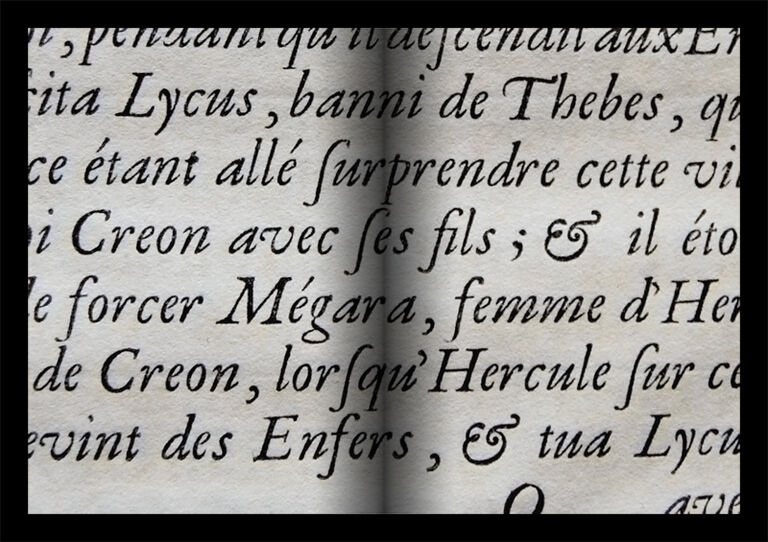 , pendant qu'il deſcendit aux En
cita Lycus, banni de Thebes, qu
ce étant allé ſurprendre cette vil
oi Creon avec ſes fils ; & il éto
de forcer Mégara, femme d'Her
de Creon, lorſqu'Hercule ſur ce
evint des Enfers, & tua Lycu
O ave